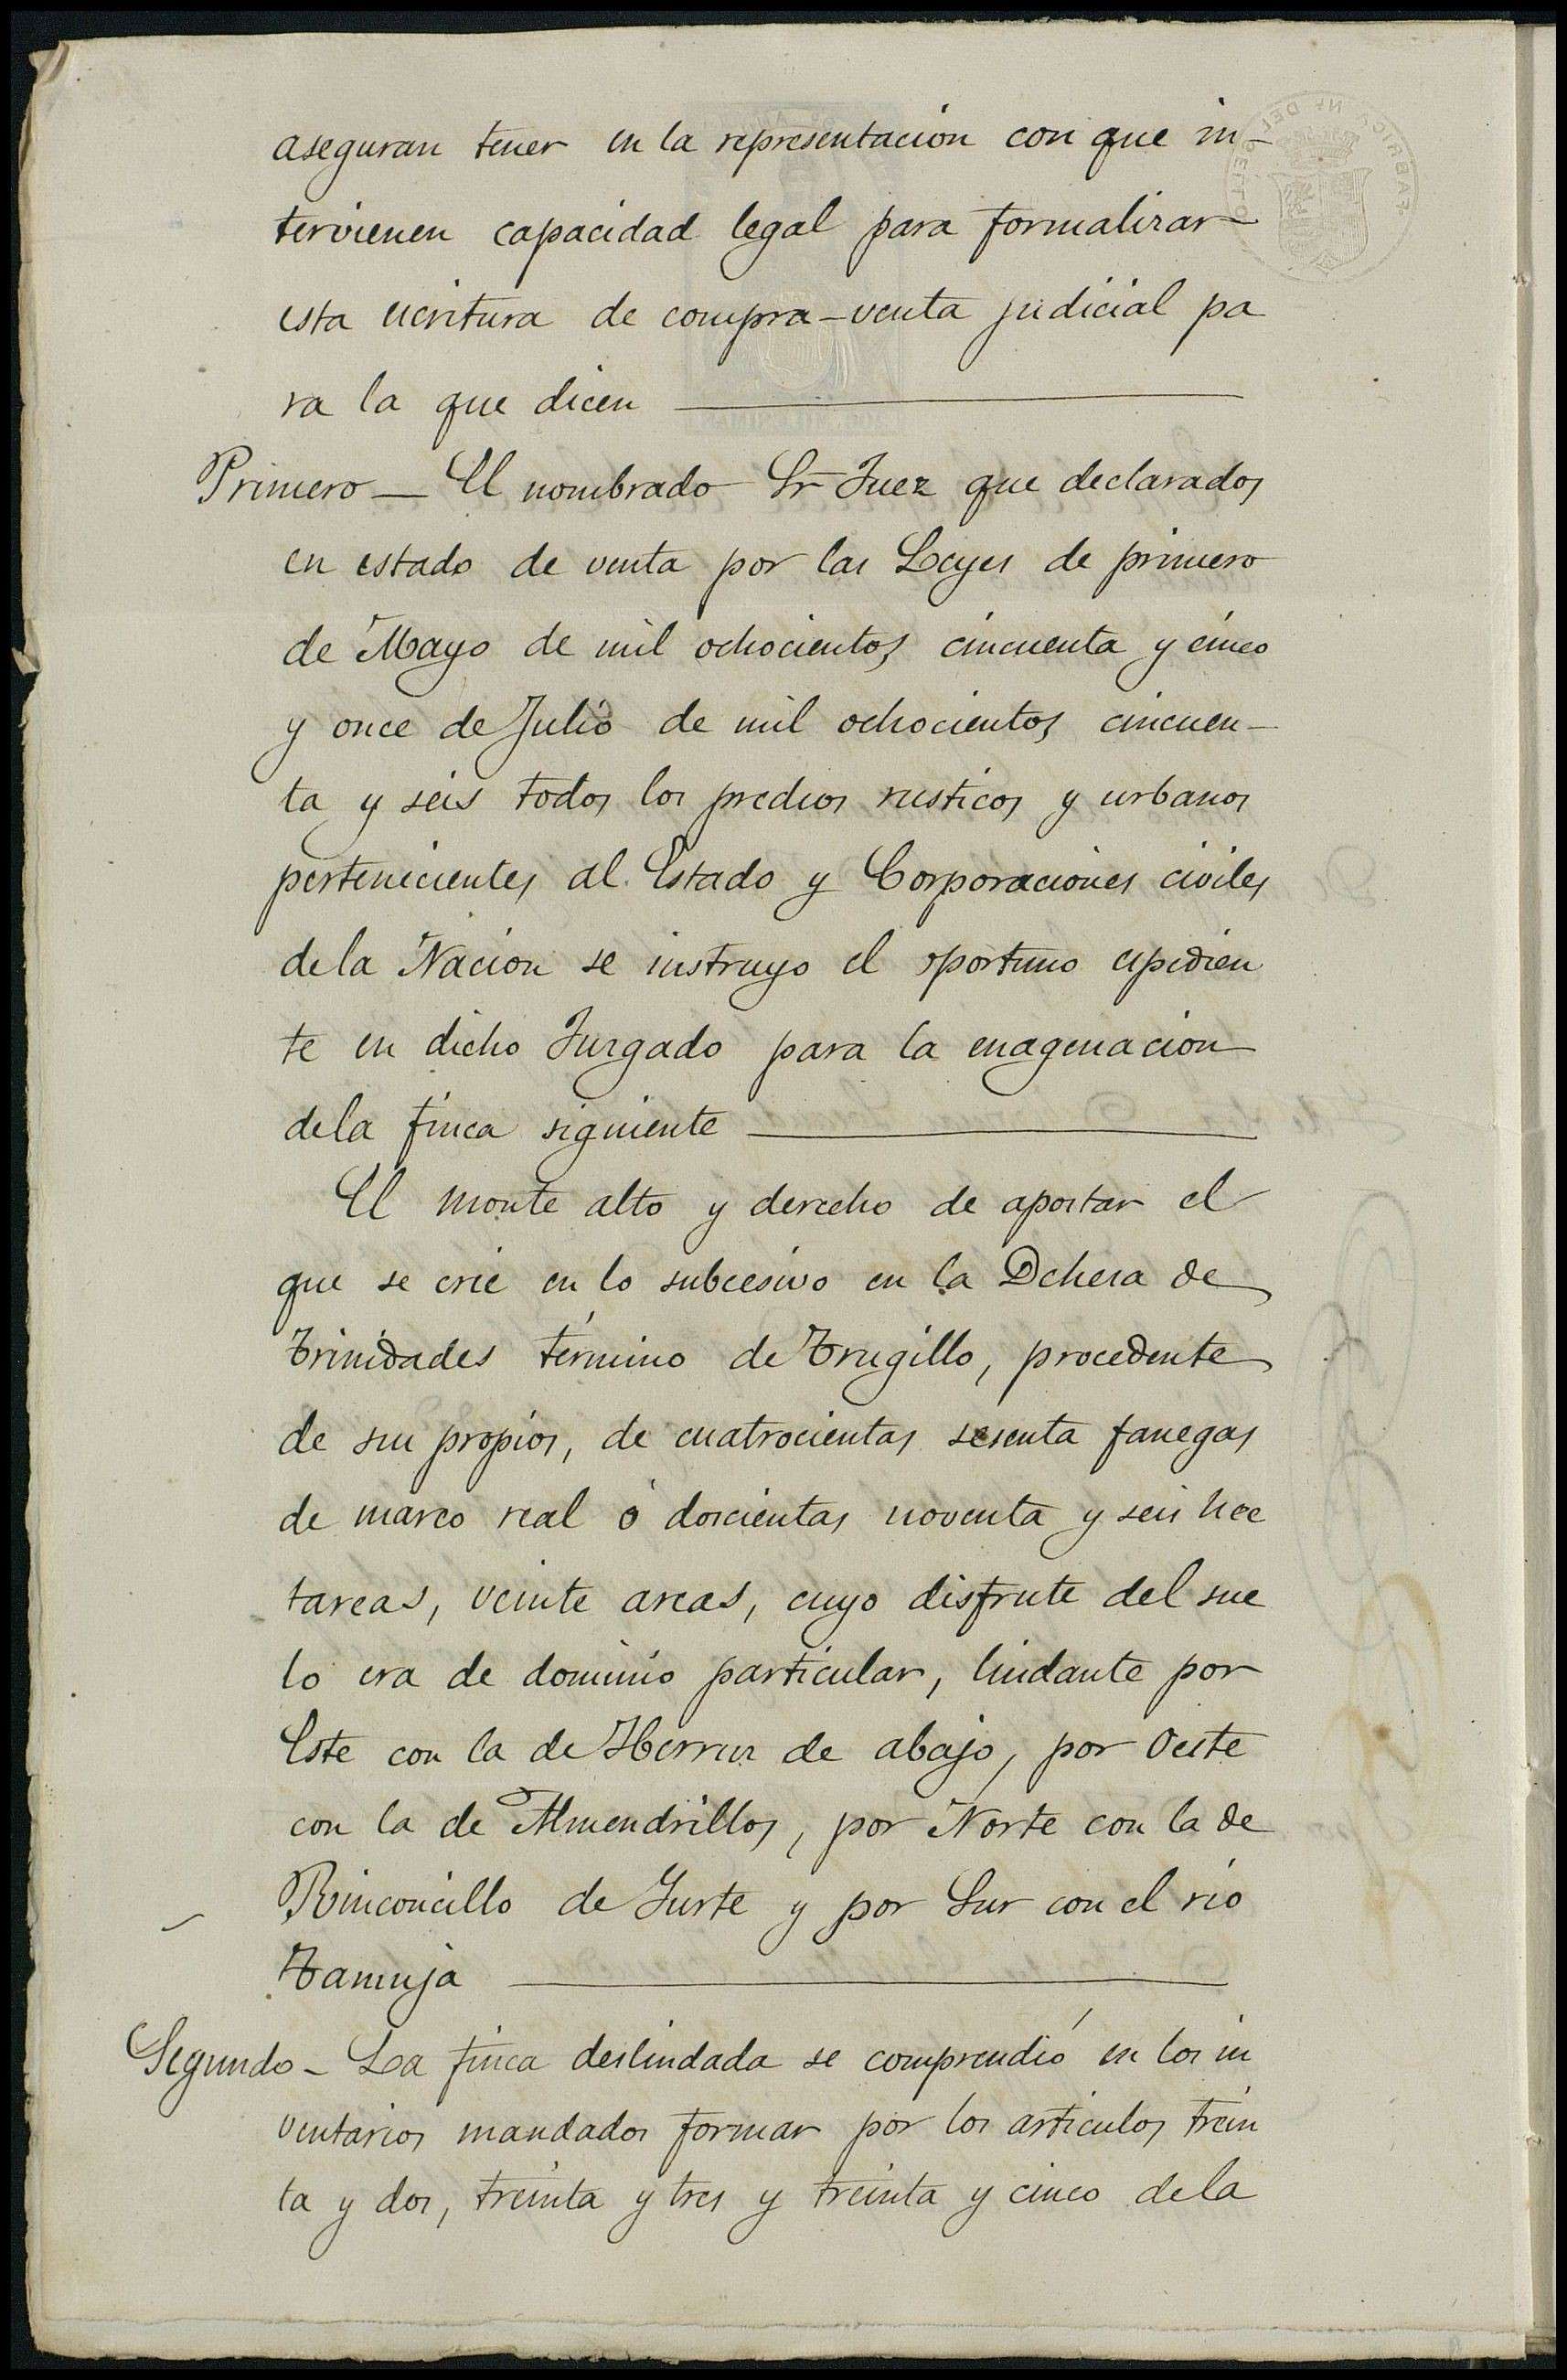 aseguran tener en la representacion con que in-
tervienen capacidad legal para formalizar
esta escritura de compra-venta judicial pa
ra la que dicen
Primero - El nombrado Sr Juez que declarados
en estado de venta por las Leyes de primero
de Mayo de mil ochocientos cincuenta y cinco
y once de Julio de mil ochocientos cincuen-
ta y seis todos los predios rusticos y urbanos
pertenecientes al Estado y Corporaciones civiles
de la Nacion se instruyo el oportuno espedien
te en dicho Juzgado para la enagenacion
de la finca siguiente
El monte alto y derecho de apostar el
que se crie en lo subcesivo en la Dehesa de
Trinidades término de Trugillo, procedente
de sus propios, de cuatrocientas sesenta fanegas
de marco real ó doscientas noventa y seis hec
tareas, veinte areas, cuyo disfrute del sue
lo era de dominio particular, lindante por
Este con la de de abajo, por Oeste
con la de Almendrillos, por Norte con la de
Rinconcillo de Yuste y por Sur con el rio
Tamuja
Segundo - La finca deslindada se comprendió en los in
ventarios mandados formar por los articulos trein
ta y dos, treinta y tres y treinta y cinco de la